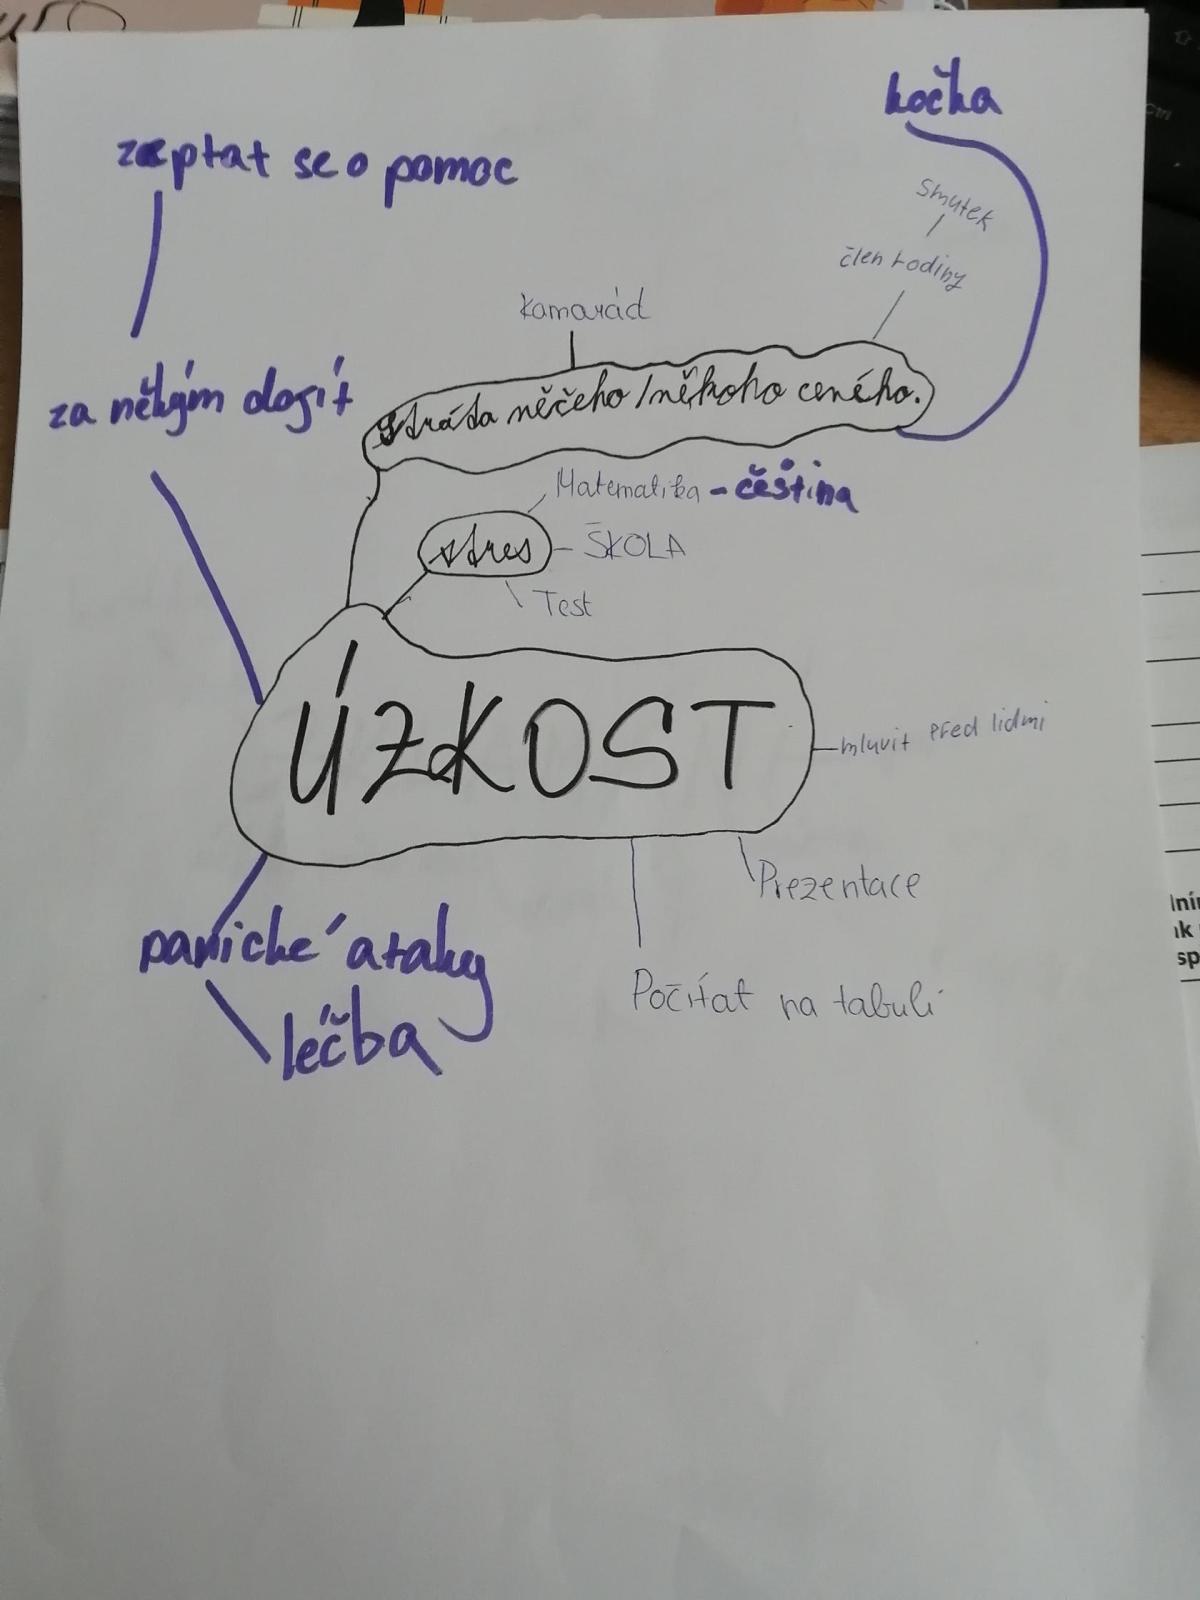 kočka
zeptat se o pomoc
smutek
člen rodiny
kamarád
za někým dojít
ztráta něčeho/někoho ceného.
Matematika - čeština
stres
ŠKOLA
Test
ÚZKOST
mluvit před lidmi
Prezentace
panické ataky
Počítat na tabuli
léčba